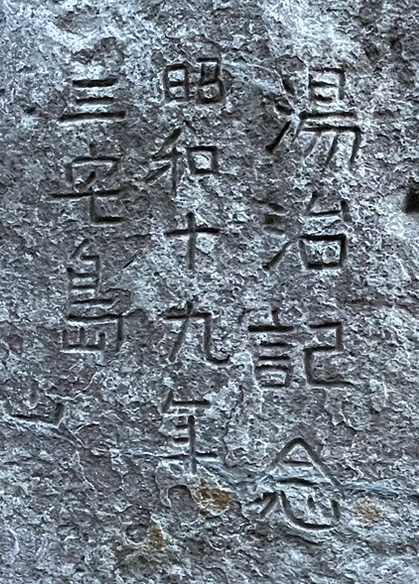 湯治記念
昭和十九年
三宅島
山